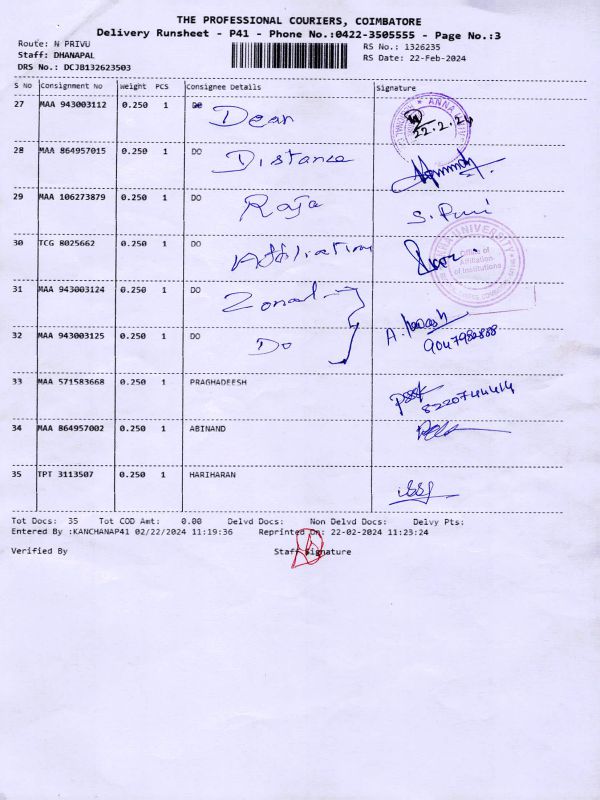 THE PROFESSIONAL COURIERS, COIMBATORE
Delivery Runsheet - P41 - Phone No.:0422-3505555 - Page No.:3
Route: N PRIVU
Staff: DHANAPAL
DRS No.: DCJB132623503
RS No.: 1326235
RS Date: 22-Feb-2024
S No Consignment No Weight PCS Consignee Details Signature
27 MAA 943003112 0.250 1 DO Dean 22.2.24
28 MAA 864957015 0.250 1 DO Distance
29 MAA 106273879 0.250 1 DO Raja S. Puni
30 TCG 8025662 0.250 1 DO Affiliation
Office of
Affiliation
of Institutions
31 MAA 943003124 0.250 1 DO Zonal
32 MAA 943003125 0.250 1 DO Do
33 MAA 571583668 0.250 1 PRAGHADEESH
34 MAA 864957002 0.250 1 ABINAND
35 TPT 3113507 0.250 1 HARIHARAN
Tot Docs: 35 Tot COD Amt: 0.00 Delvd Docs: Non Delvd Docs: Delvy Pts:
Entered By :KANCHANAP41 02/22/2024 11:19:36 Reprinted On: 22-02-2024 11:23:24
Verified By Staff Signature